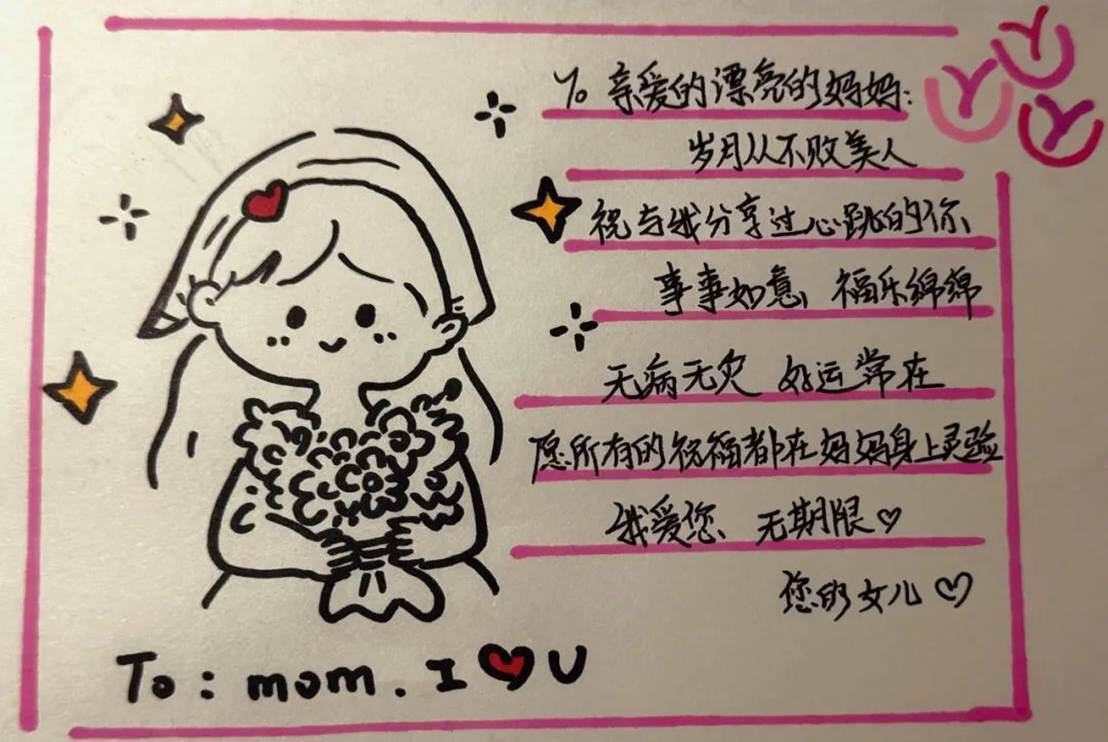 To 亲爱的漂亮的妈妈:
岁月从不败美人
祝与我分享过心跳的你、
事事如意, 福乐绵绵
无病无灾 好运常在
愿所有的祝福都在妈妈身上灵验
我爱您、无期限♡
您的女儿♡
To: mom. I ❤ U